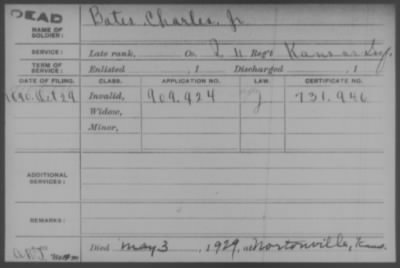 DEAD
NAME OF SOLDIER: Bates, Charles, Jr.
SERVICE: Late rank, Co. I, 11 Reg't Kansas Inf.
TERM OF SERVICE: Enlisted , 1 Discharged , 1
DATE OF FILING. CLASS. APPLICATION NO. LAW. CERTIFICATE NO.
1890 Oct 29 Invalid, 909.924 J 731.946
Widow,
Minor,
ADDITIONAL SERVICES:
REMARKS:
Died May 3, 1929, at Nortonville, Kans.